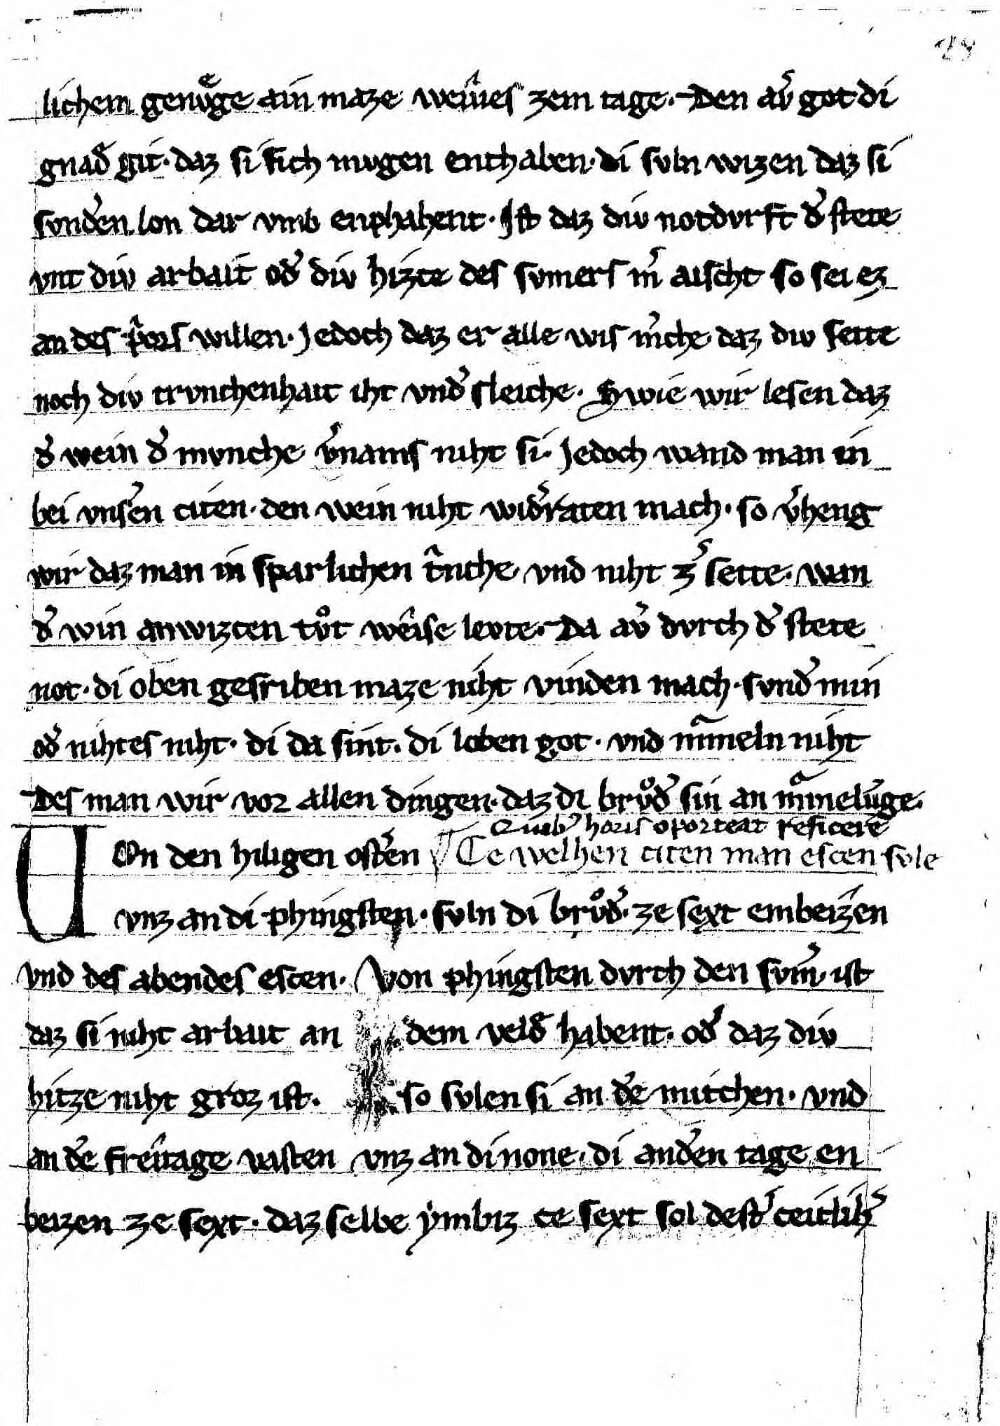 lichem genvͤge ain maze weines zem tage. Den av̾ got di
gnad̾ git. daz si sich mvgen enthaben. di svln wizen daz si
svnd̾en lon dar vmb enphahent. Ist daz div notdvrft d̾ stete
vnt div arbait od̾ div hizce des svmers m̾ aischt so sei ez
an des p̾ors willen. Jedoch daz er alle wis m̾che daz div sette
noch div trvnchenhait iht vnd̾ sleiche. Swie wir lesen daz
d̾ wein d̾ mvnche v̾nams niht si. Jedoch wand man in
bei vns̾en citen. den wein niht wid̾raten mach. so v̾heng
wir daz man in sparlichen t̂nche vnd niht z̾ sette. wan
d̾ win anwizcen tvͦt weise levte. Da av̾ dvrch d̾ stete
not. di oben gesriben maze niht vinden mach. svnd̾ min
od̾ nihtes niht. di da sint. di loben got. vnd mͣmeln niht
Des man wir vor allen dingen. daz di brvͦd̾ sin an mͣmelv̄ge.
Quib̾ horis oporteat reficere
Von den hiligen ost̾en ¶ Ce welhen citen man escen svle
vnz an di phingsten. svln di brvͦd̾. ze sext embeizen
vnd des abendes escen. Von phingsten dvrch den svm̾. ist
daz si niht arbait an dem veld̾ habent. od̾ daz div
hitze niht groz ist. so svlen si an d̾e mitchen. vnd
an d̾e freitage vasten vnz an di none. di and̾en tage en
beizen ze sext. daz selbe ẏmbiz ce sext sol dest̾ ceitlih̾